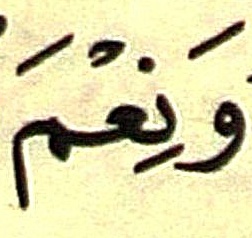 وَنِعْمَ